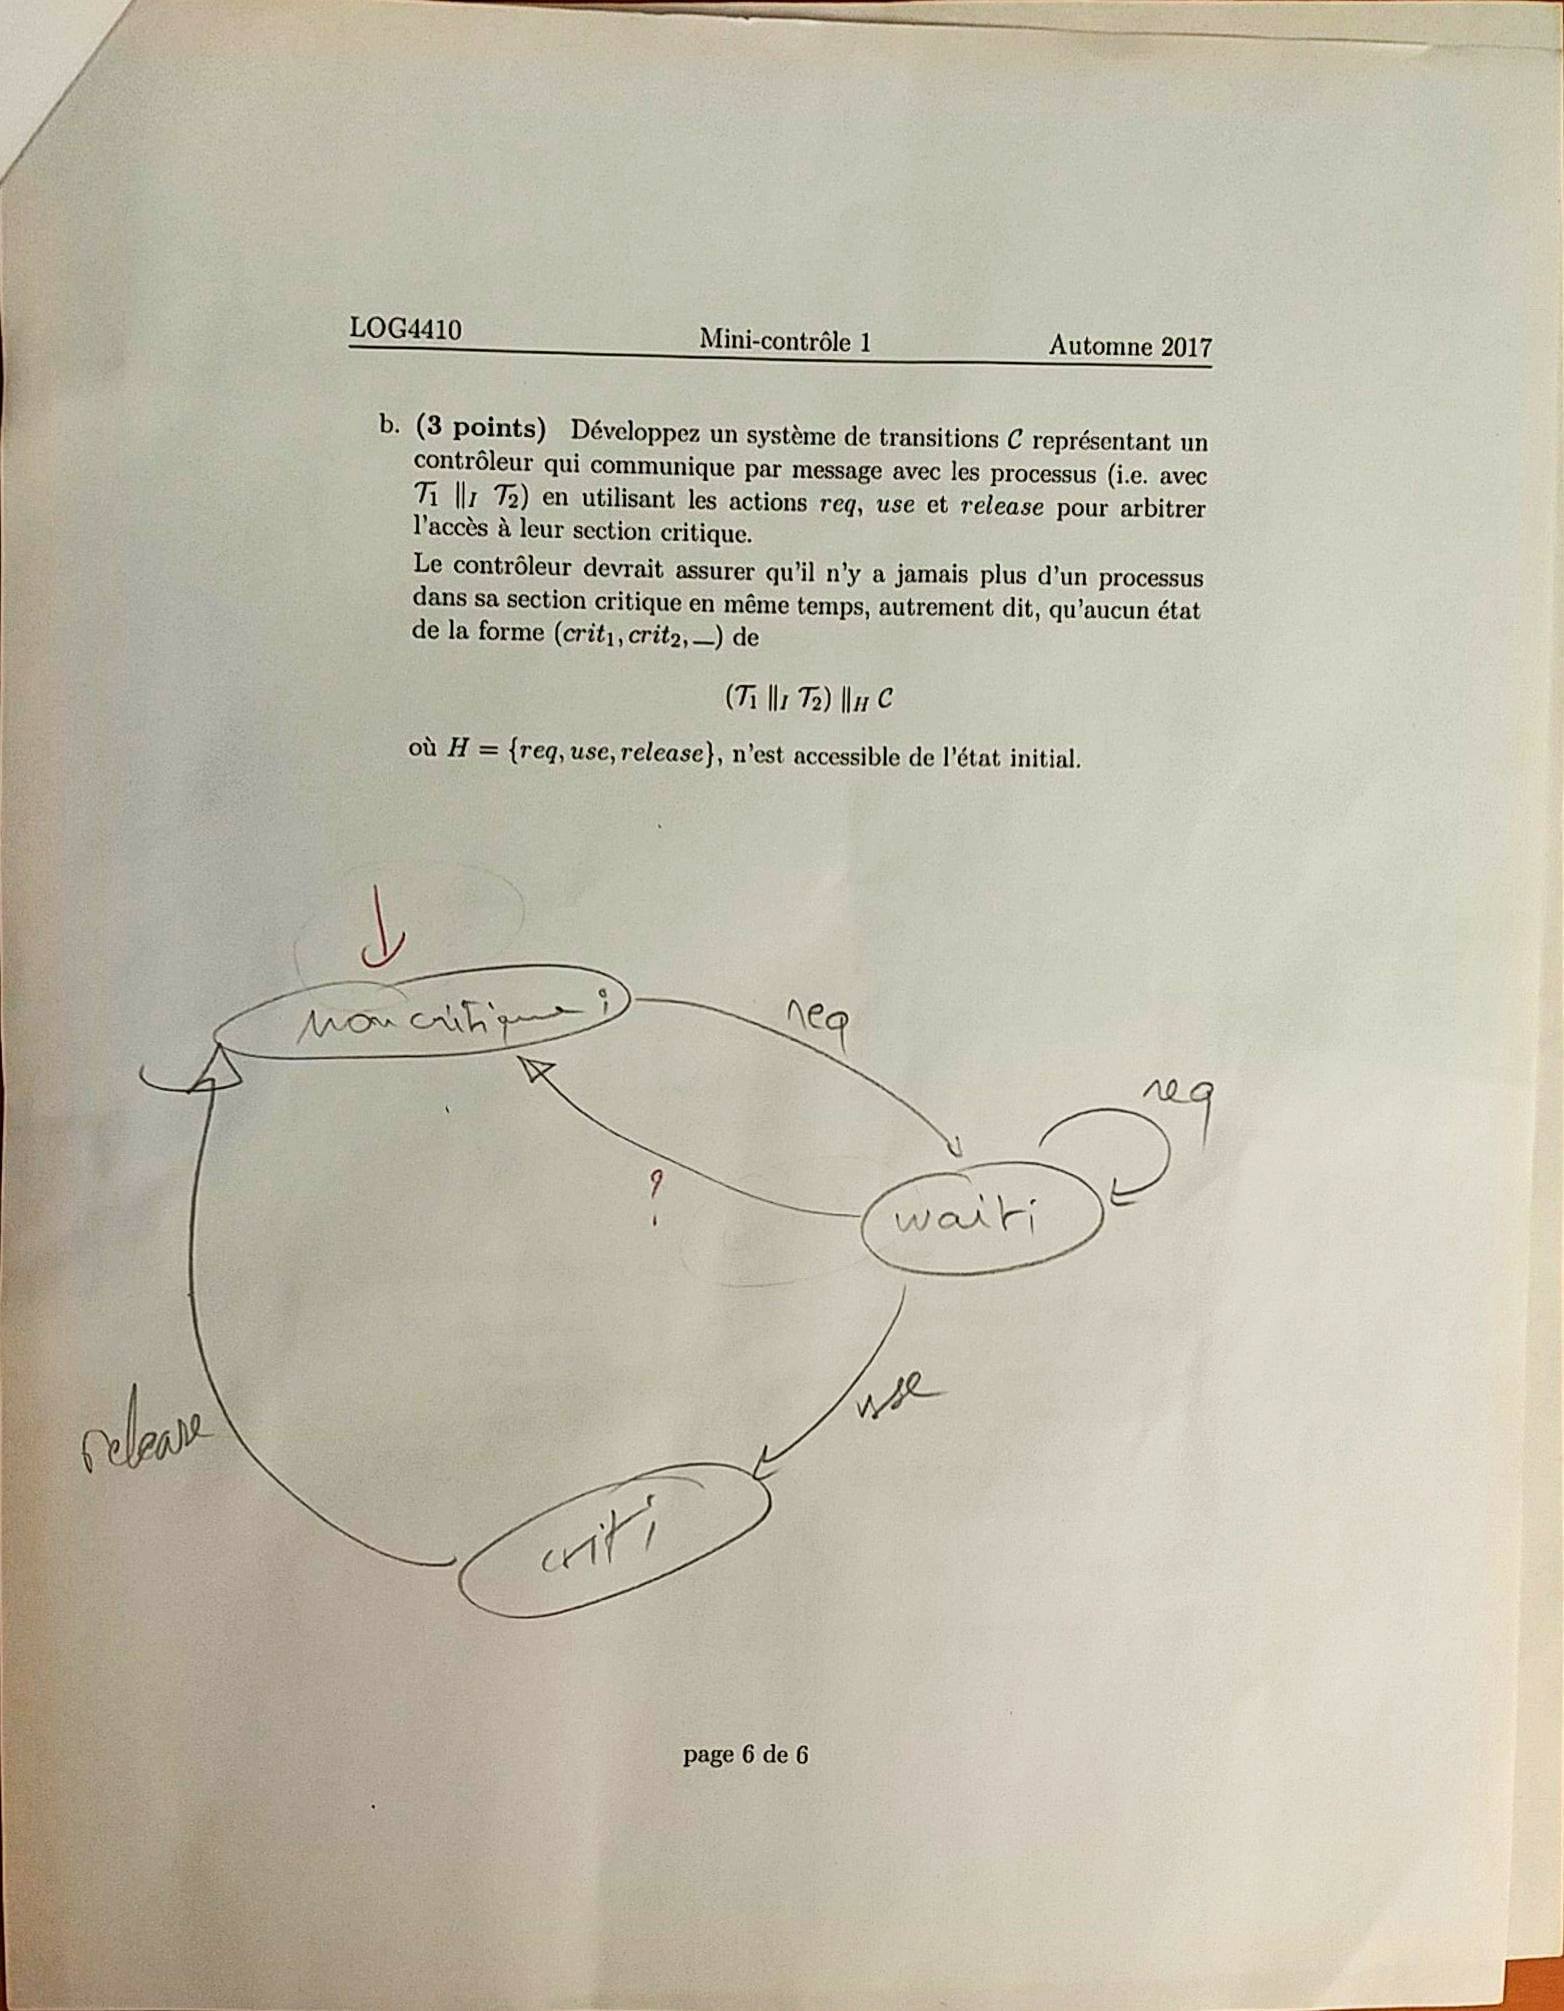 LOG4410 Mini-contrôle 1 Automne 2017
b. (3 points) Développez un système de transitions C représentant un
contrôleur qui communique par message avec les processus (i.e. avec
T₁ ||I T₂) en utilisant les actions req, use et release pour arbitrer
l'accès à leur section critique.
Le contrôleur devrait assurer qu'il n'y a jamais plus d'un processus
dans sa section critique en même temps, autrement dit, qu'aucun état
de la forme (crit₁, crit₂, —) de
(T₁ ||I T₂) ||H C
où H = {req, use, release}, n'est accessible de l'état initial.
non critique i
req
req
?
waiti
use
release
criti
page 6 de 6